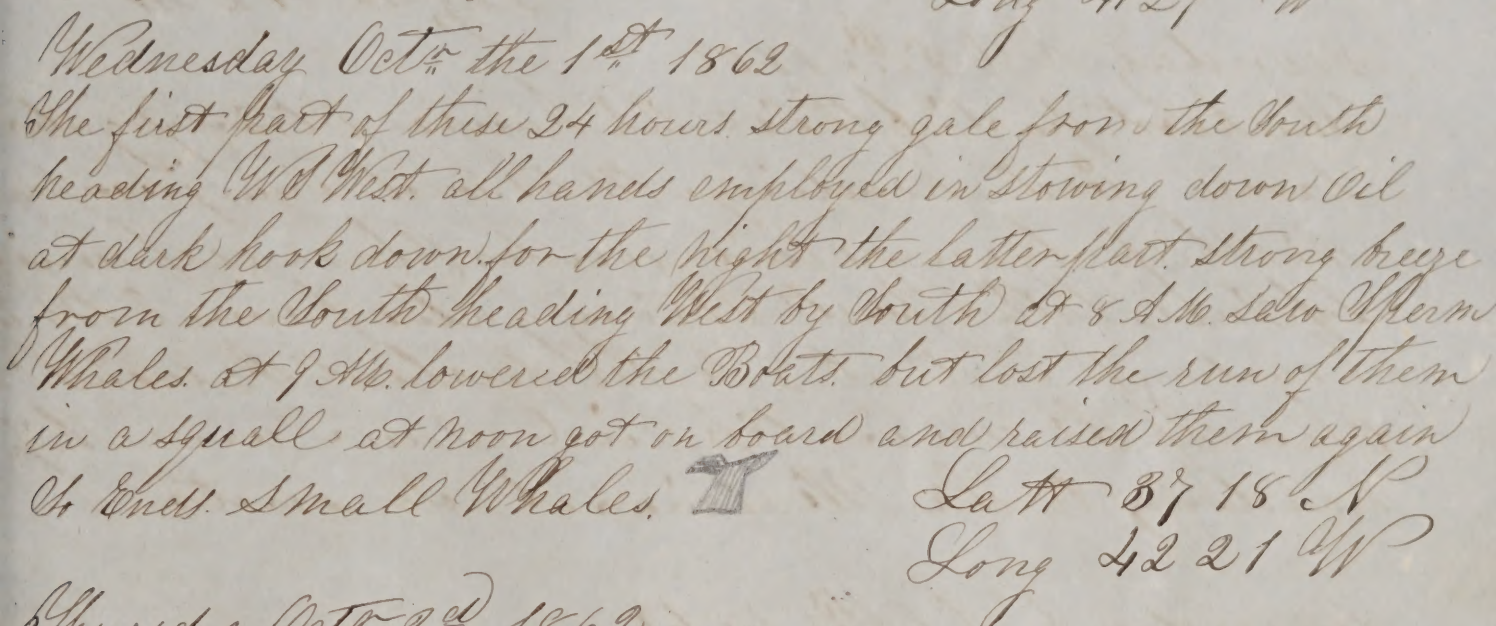 Wednesday Octr the 1st 1862
The first part of these 24 hours strong gale from the South
heading W S West. all hands employed in stowing down Oil
at dark hook down for the night the latter part strong breeze
from the South heading West by South at 8 A.M. saw Sperm
Whales. at 9 AM. lowered the Boats. but lost the run of them
in a squall at noon got on board and raised them again
So Ends. Small Whales.
Latt 37 18 N
Long 42 21 W
Octr 2d 1862